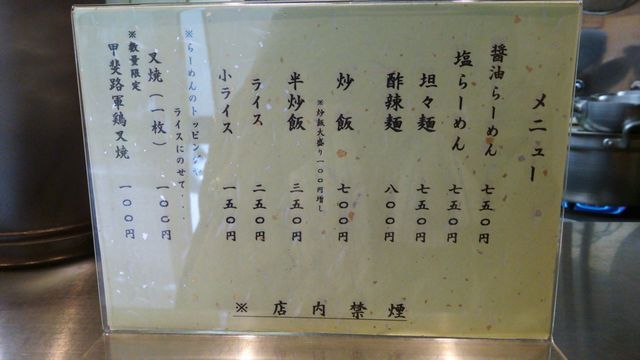 メニュー
醤油らーめん 七五〇円
塩らーめん 七五〇円
坦々麺 七五〇円
酢辣麺 八〇〇円
炒飯 七〇〇円
※炒飯大盛り一〇〇円増し
半炒飯 三五〇円
ライス 二五〇円
小ライス 一五〇円
※らーめんのトッピングを
ライスにのせて・・・
叉焼(一枚) 一〇〇円
※数量限定
甲斐路軍鶏叉焼 一〇〇円
※店内禁煙